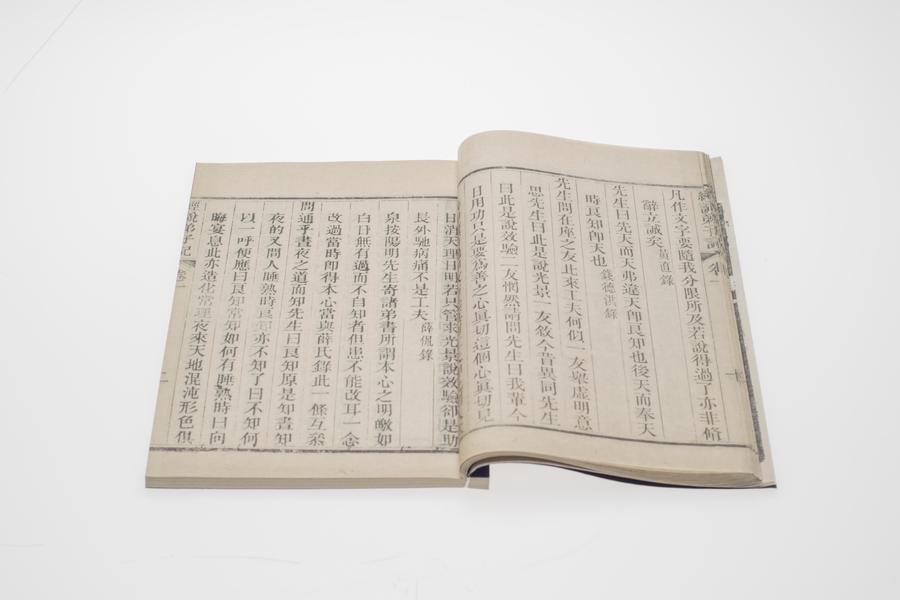 凡作文字要隨我分限所及若說得過了亦非脩
辭立誠矣 黃直錄
先生曰先天而天弗違天即良知也後天而奉天
時良知即天也 錢德洪錄
先生問在座之友比來工夫何似一友舉虛明意
思先生曰此是說光景一友敘今昔異同先生
曰此是說效驗二友惘然請問先生曰我輩今
日用功只是要為善之心真切這個心真切見
日消天理日明若只管求光景說效驗卻是助
長外馳病痛不是工夫 薛侃錄
泉按陽明先生寄諸弟書所謂本心之明皦如
白日無有過而不自知者但患不能改耳一念
改過當時即得本心當與薛氏錄此一條互參
問通乎晝夜之道而知先生曰良知原是知晝知
夜的又問人睡熟時良知亦不知了曰不知何
以一呼便應曰良知常知如何有睡熟時曰向
晦宴息此亦造化常理夜來天地混沌形色俱
經說弟子記 卷一 二